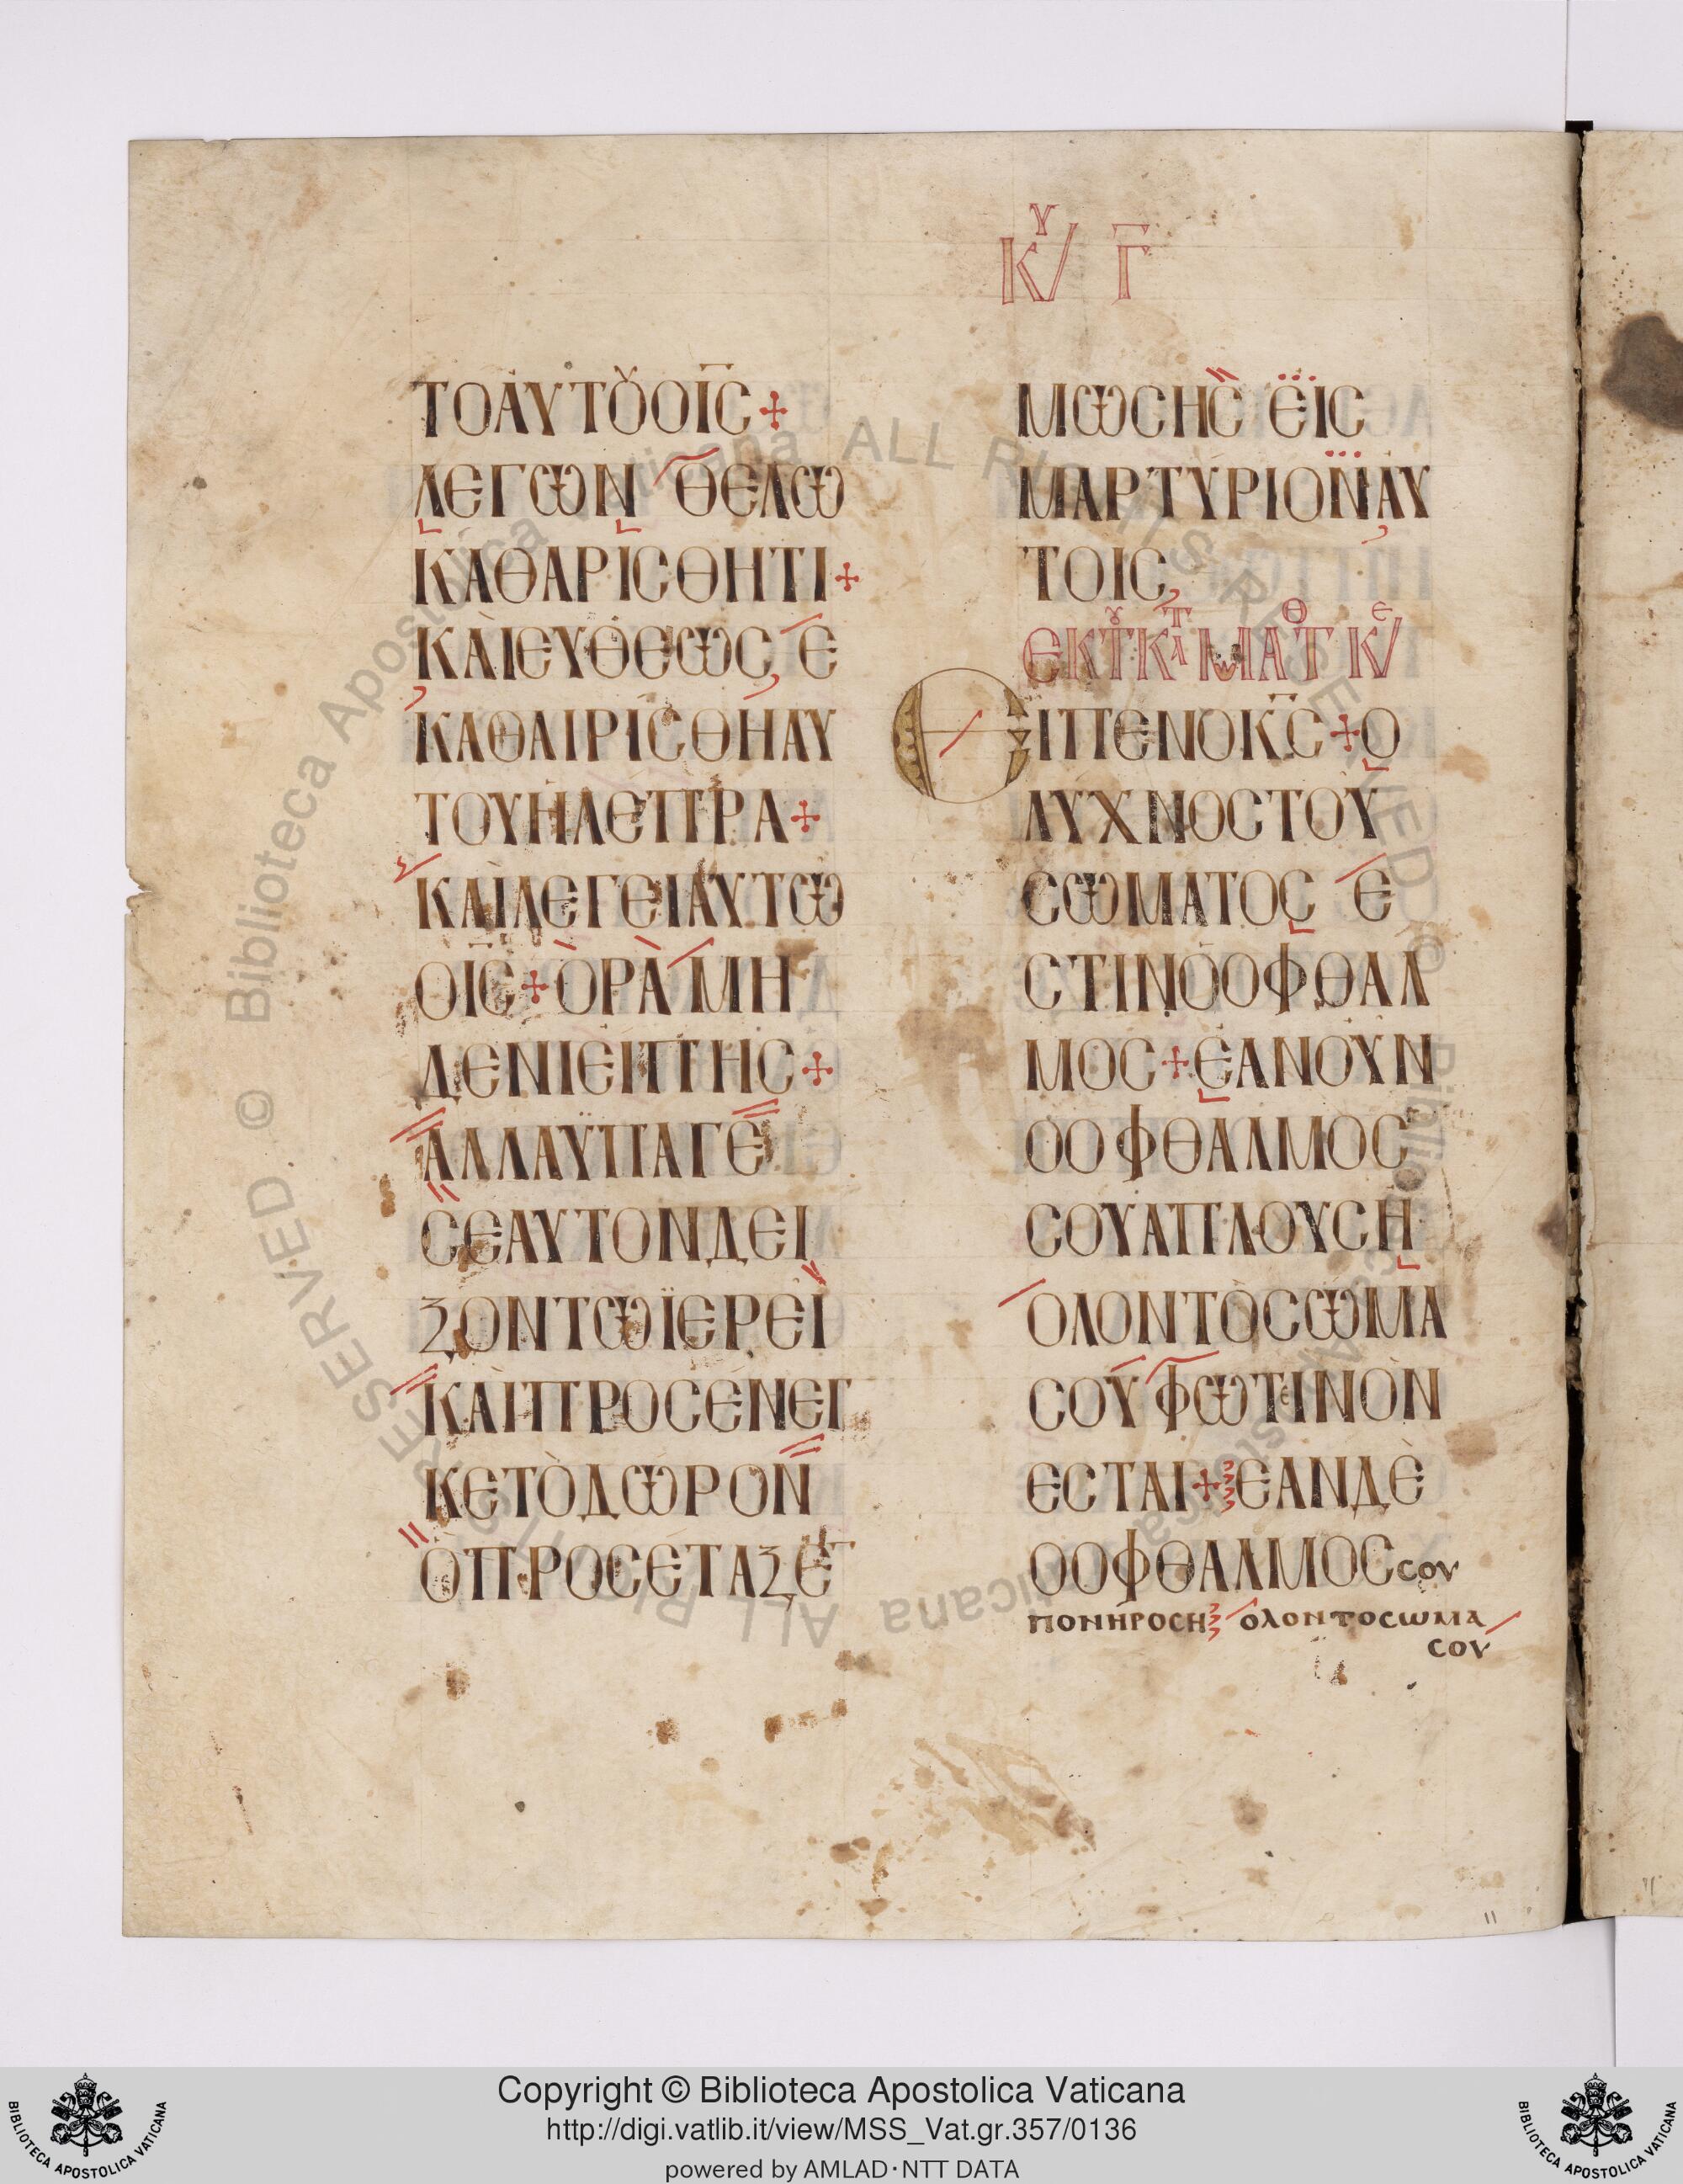 ΚΥ Γ̅
ΤΟΑΥΤΟΥΟΙ̅C̅+
ΛΕΓΩΝ ΘΕΛΩ
ΚΑΘΑΡΙCΘΗΤΙ+
ΚΑΙΕΥΘΕΩC Ε
ΚΑΘΑΙΡΙCΘΗΑΥ
ΤΟΥΗΛΕΠΡΑ+
ΚΑΙΛΕΓΕΙΑΥΤΩ
ΟΙ̅C̅+ΟΡΑ ΜΗ
ΔΕΝΙΕΙΠΗC+
ΑΛΛΑΫΠΑΓΕ
CΕΑΥΤΟΝΔΕΙ
ΞΟΝΤΩΪΕΡΕΙ
ΚΑΙΠΡΟCΕΝΕΓ
ΚΕΤΟΔΩΡΟΝ
ΟΠΡΟCΕΤΑΞΕ
ΜΩCΗC ΕΙC
ΜΑΡΤΥΡΙΟΝΑΥ
ΤΟΙC
ΕΙΠΕΝΟΚ̅C̅+Ο
ΛΥΧΝΟCΤΟΥ
CΩΜΑΤΟC Ε
CΤΙΝΟΟΦΘΑΛ
ΜΟC+ΕΑΝΟΥΝ
ΟΟΦΘΑΛΜΟC
CΟΥΑΠΛΟΥCΗ
ΟΛΟΝΤΟCΩΜΑ
CΟΥ ΦΩΤΙΝΟΝ
ΕCΤΑΙ+ΕΑΝΔΕ
ΟΟΦΘΑΛΜΟCCΟΥ
ΠΟΝΗΡΟCΗ ΟΛΟΝΤΟCΩΜΑ
CΟΥ
11
© Biblioteca Apostolica Vaticana ALL RIGHTS RESERVED
© Biblioteca Apostolica Vaticana ALL RIGHTS RESERVED
Copyright © Biblioteca Apostolica Vaticana
http://digi.vatlib.it/view/MSS_Vat.gr.357/0136
powered by AMLAD·NTT DATA
BIBLIOTECA APOSTOLICA VATICANA
BIBLIOTECA APOSTOLICA VATICANA